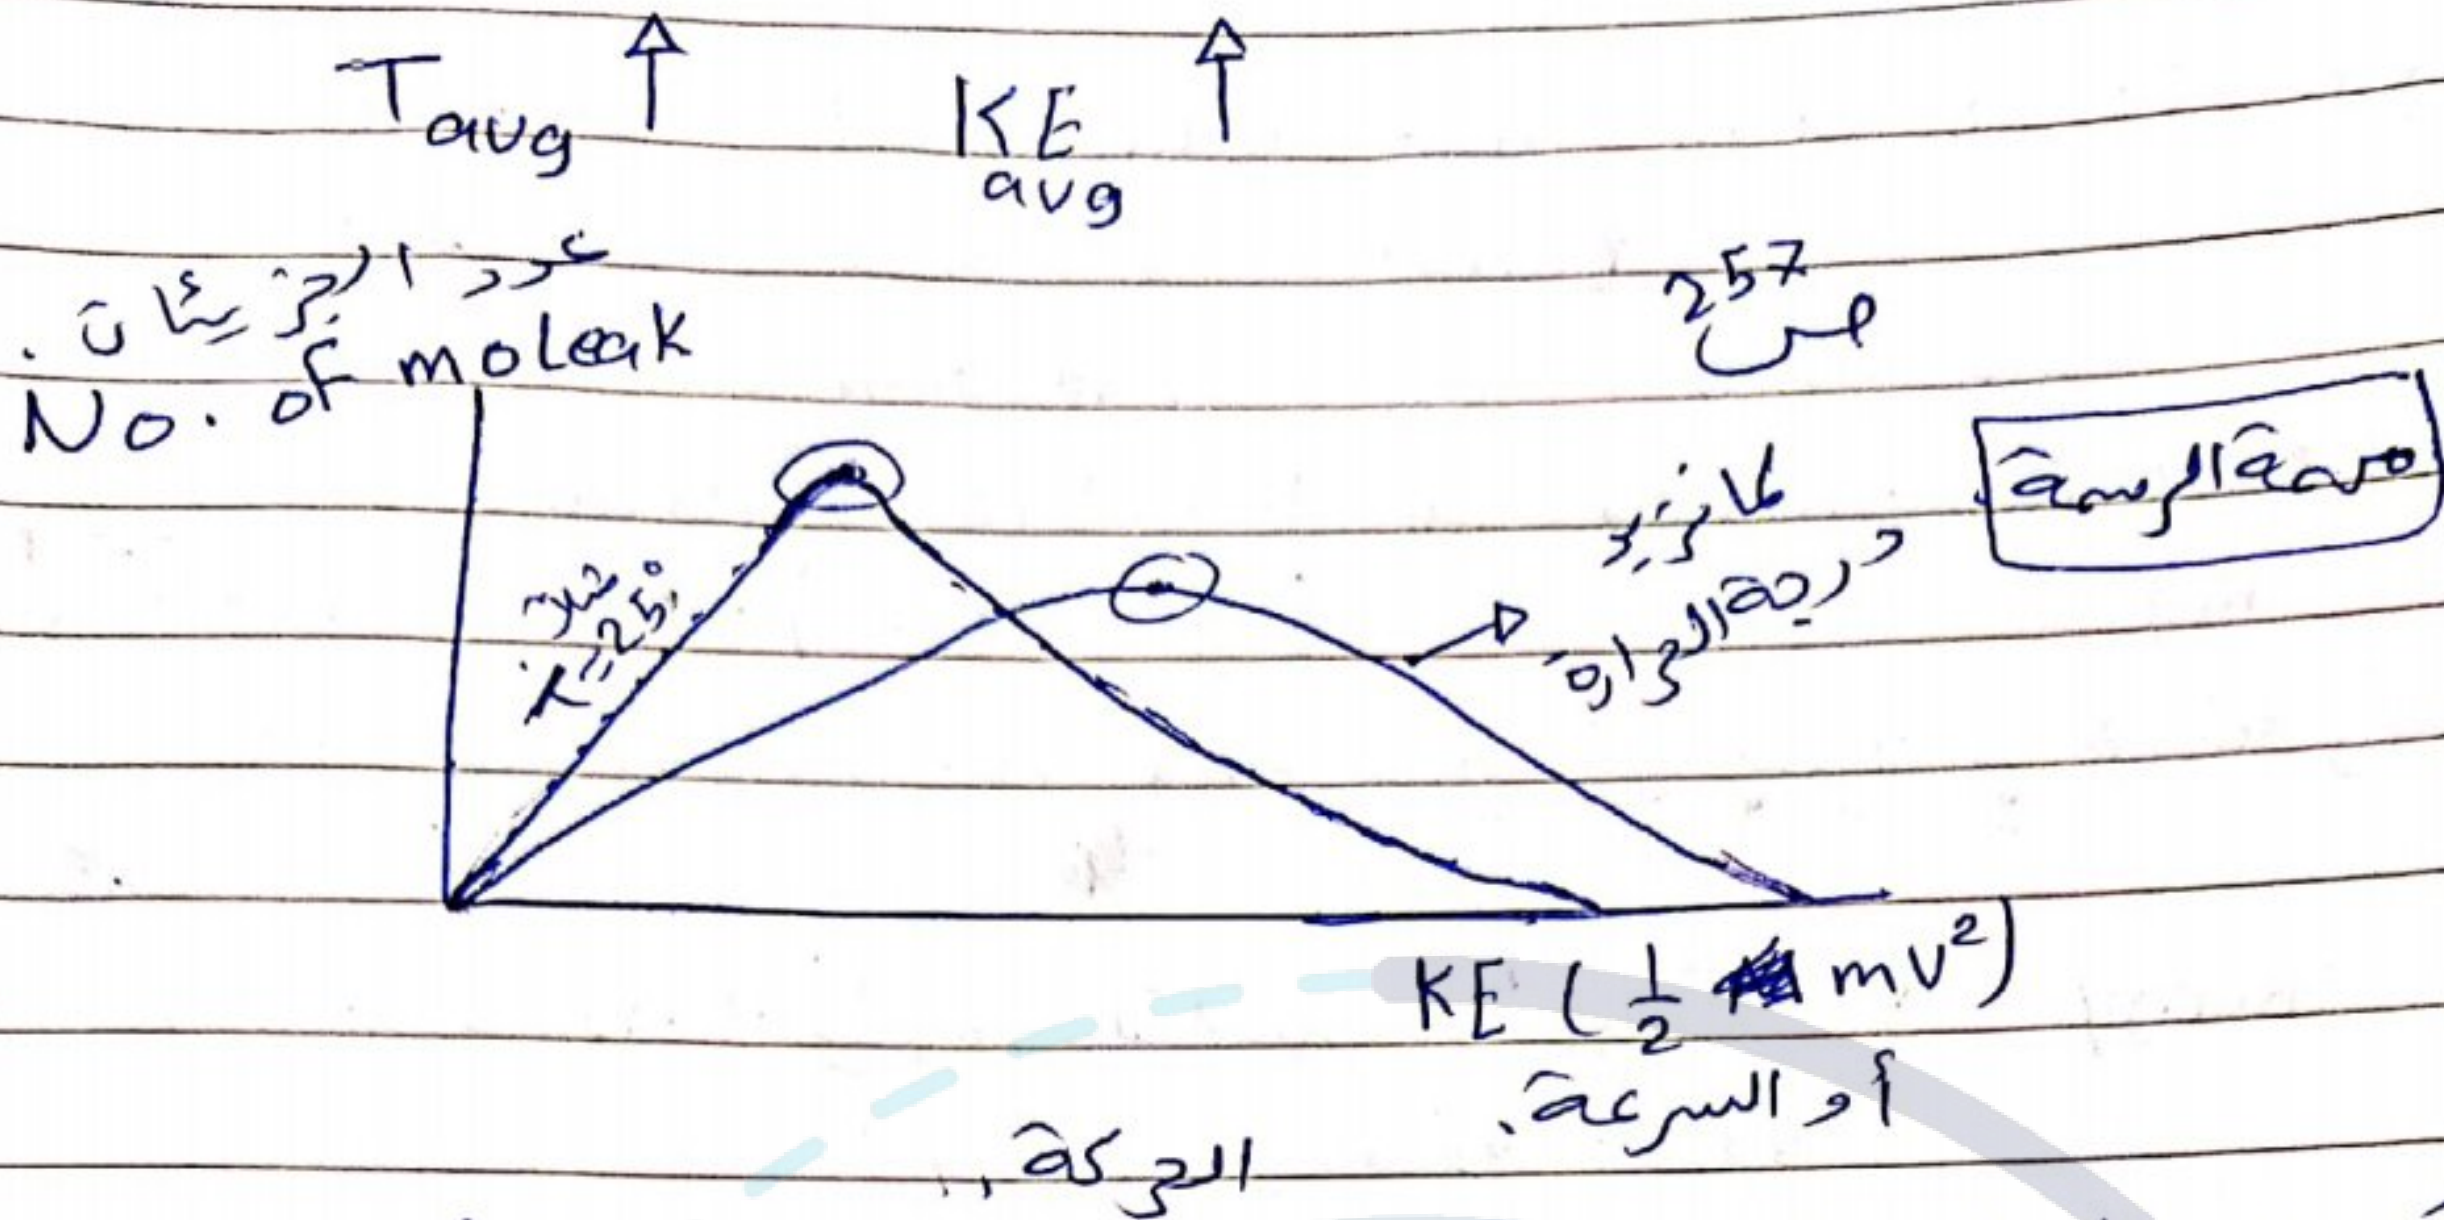 T avg ↑ KE avg ↑
عدد الجزيئات.
No. of moleak
257 ص
مهمة الرسمة
لما تزيد
درجة الحرارة
25°
KE (1/2 mv²)
أو السرعة.
الحركة